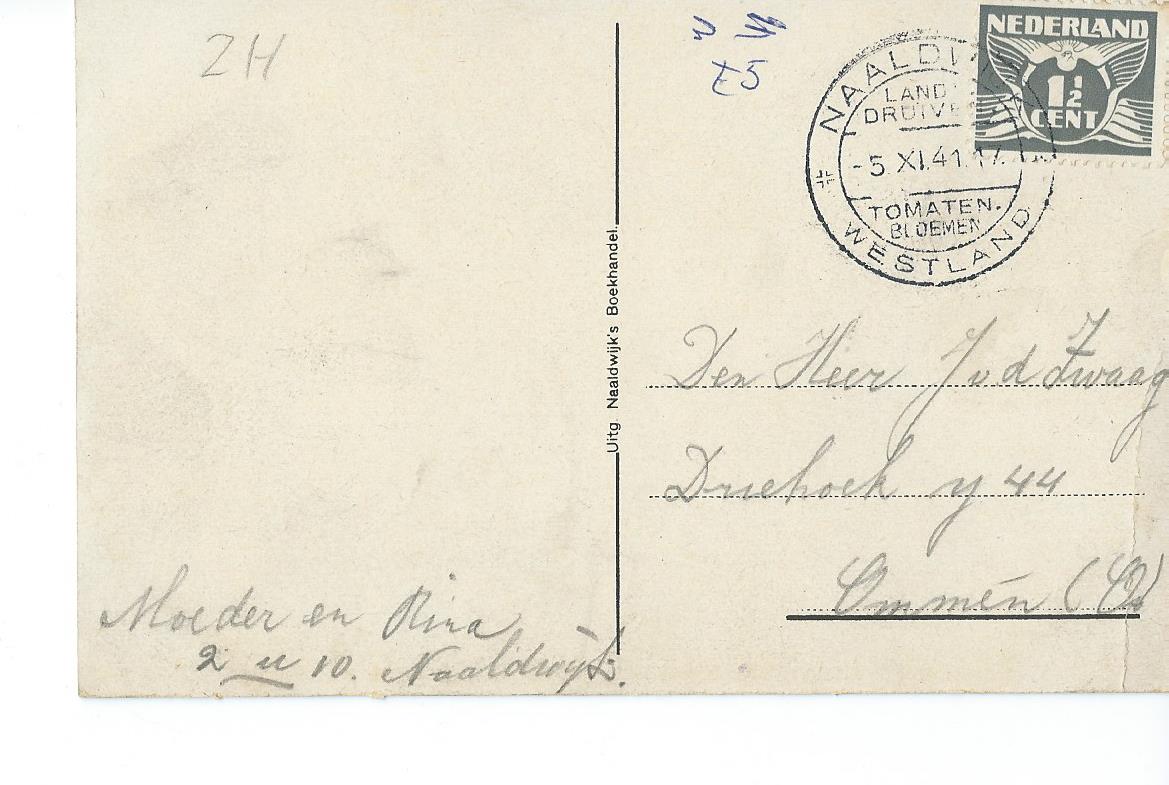 ZH
NEDERLAND
1½
CENT
NAALDWIJK
LAND
DRUIVEN
-5.XI.41.17.
TOMATEN.
BLOEMEN
WESTLAND
Uitg. Naaldwijk's Boekhandel.
Den Heer J v d Zwaag
Driehoek y 44
Ommen (O)
Moeder en Rina
2 u 10. Naaldwijk.